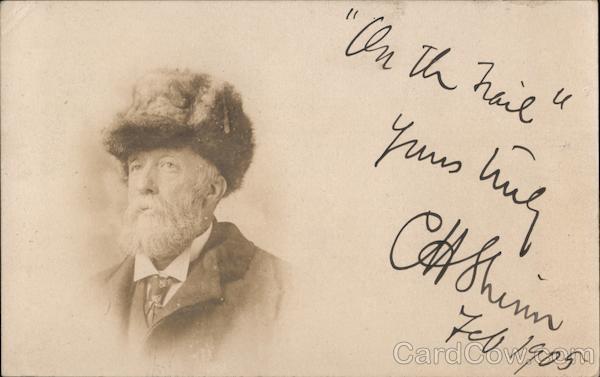 "On the Trail"
Yours truly
CHShinn
Feb 1905
CardCow.com